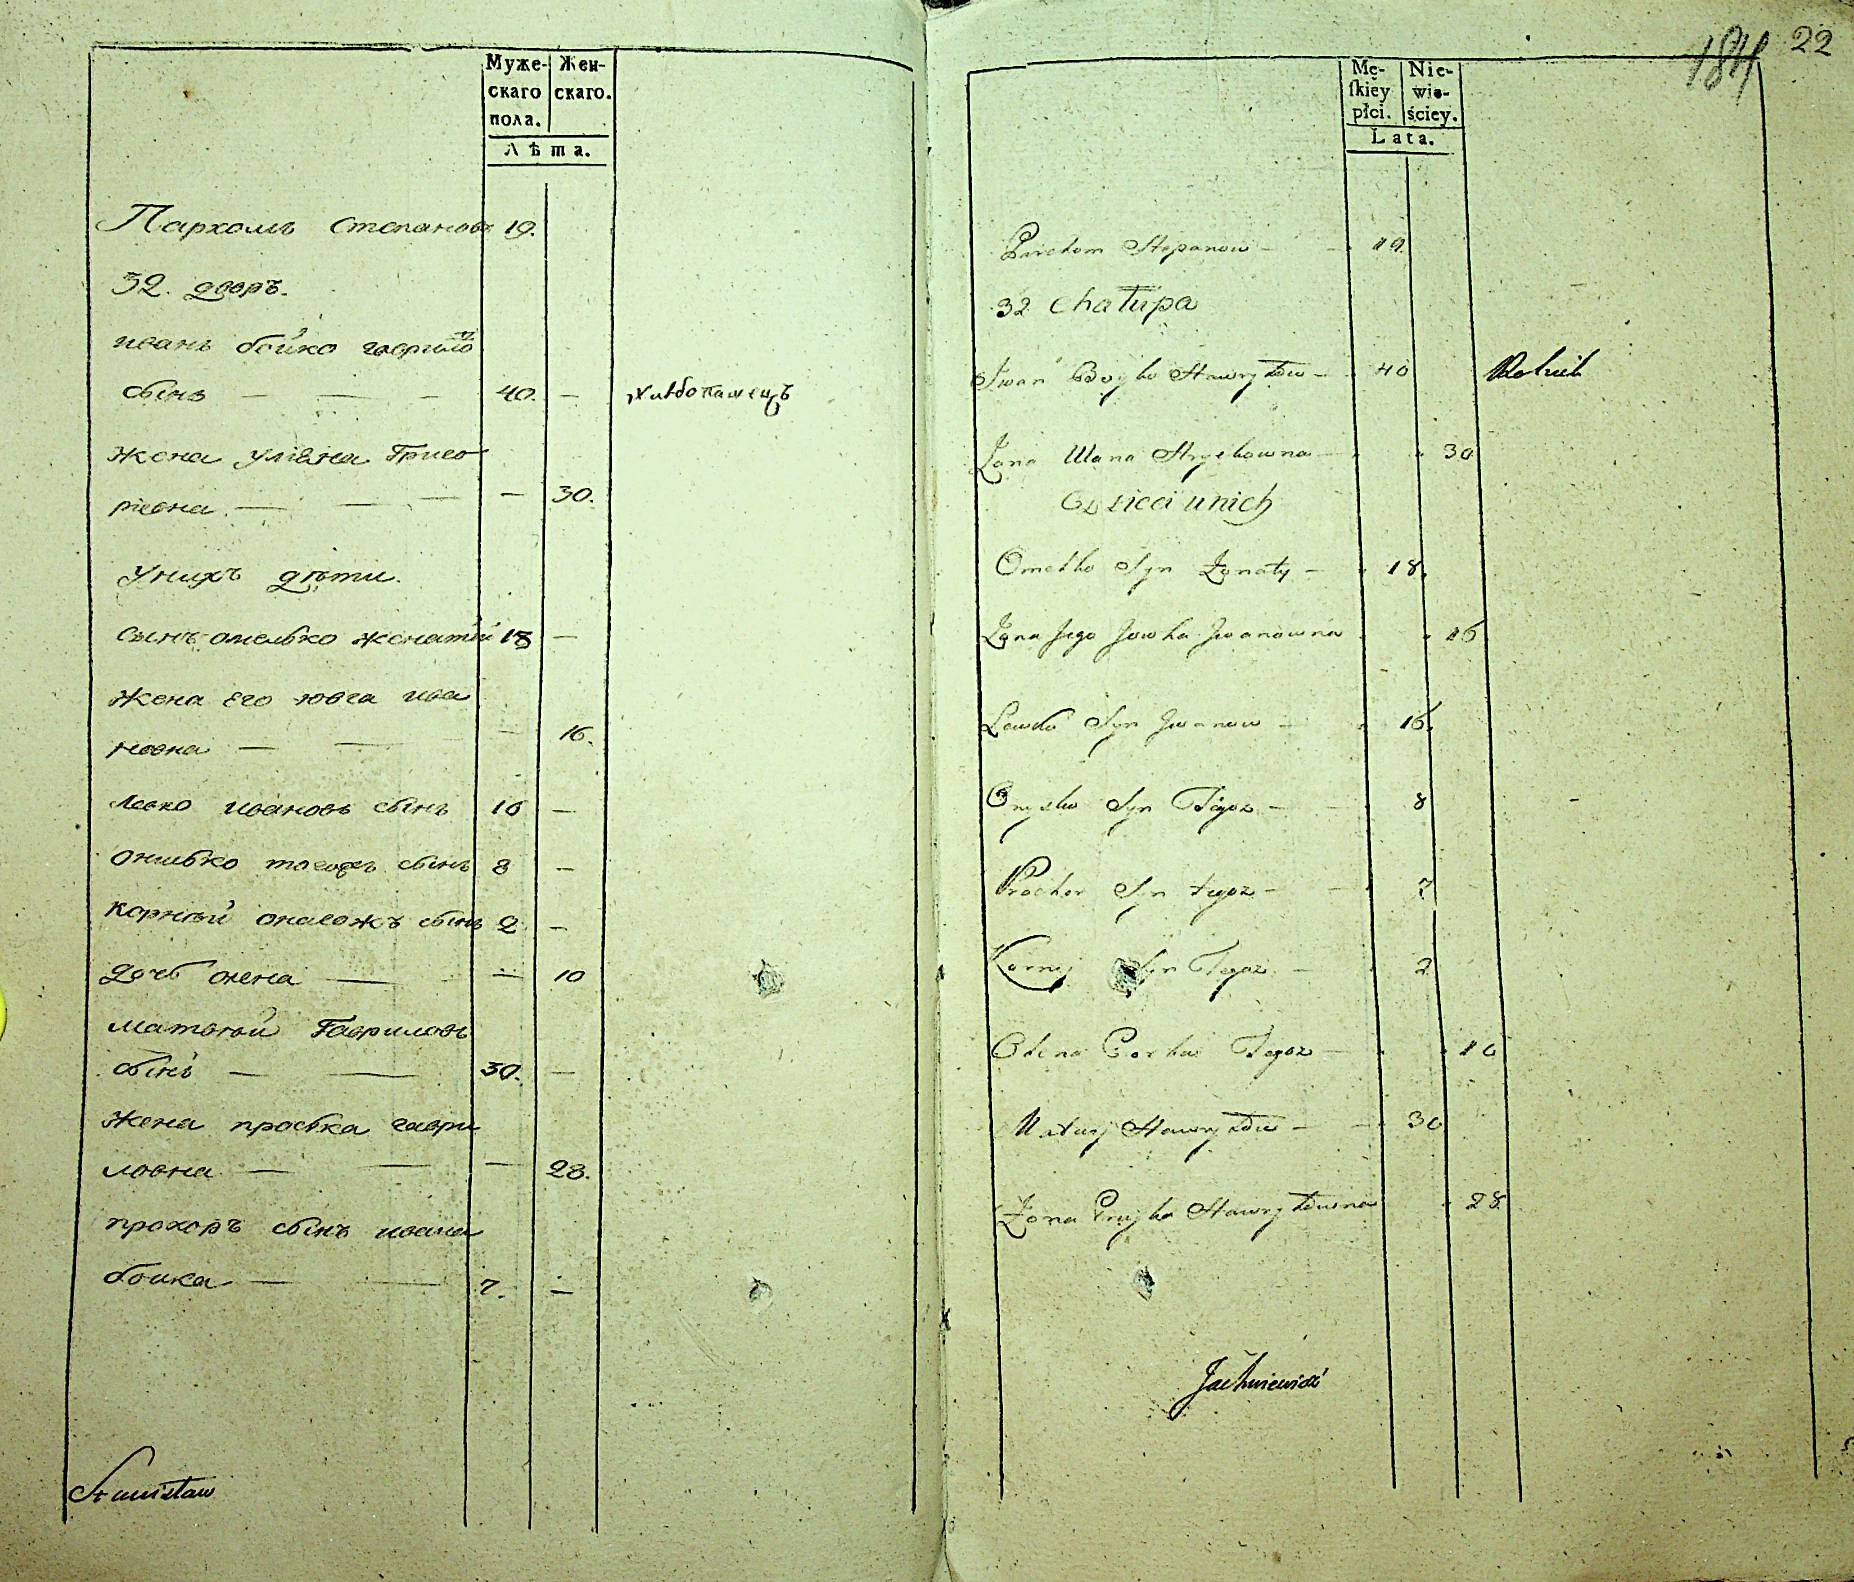 Муже- Жен-
скаго скаго.
пола.
Лѣта.
Пархомъ Степановъ 19.
32. дворъ.
иванъ бойко гаврило
сынъ — — — 40. — хлебопашецъ
жена уляна Григо
риевна — — — 30.
Унихъ дѣти.
сынъ омелько женатый 18 —
жена его ювга ива
новна — — — 16.
левко ивановъ сынъ 16 —
онисько тогожъ сынъ 8 —
корный оногожъ сынъ 2 —
дочь олена — — 10
матвѣй Гавриловъ
сынъ — — 30. —
жена проська гаври
ловна — — — 28.
прохоръ сынъ ивана
бойка — — 7. —
Stanisław
184 22
Mę- Nie-
ſkiey wie-
płci. ściey.
Lata.
Parchom Stepanow — — 19.
32 chałupa
Iwan Boyko Hawryłow — 40 Rolnik
Żona Ulana Hryehowna — 30
Dzieci unich
Omelko Syn Żonaty — 18.
Żona Jego Jowha Jwanowna 16
Lewko Syn Jwanow — 16.
Onysko Syn Tegoz — 8
Prochor Syn tegoz — 7
Korniy Syn Tegoz — 2
Olena Corka Tegoz — 10
Matwij Hawryłow — 30
Żona Prujka Hawryłowna 28
Jachniewicz